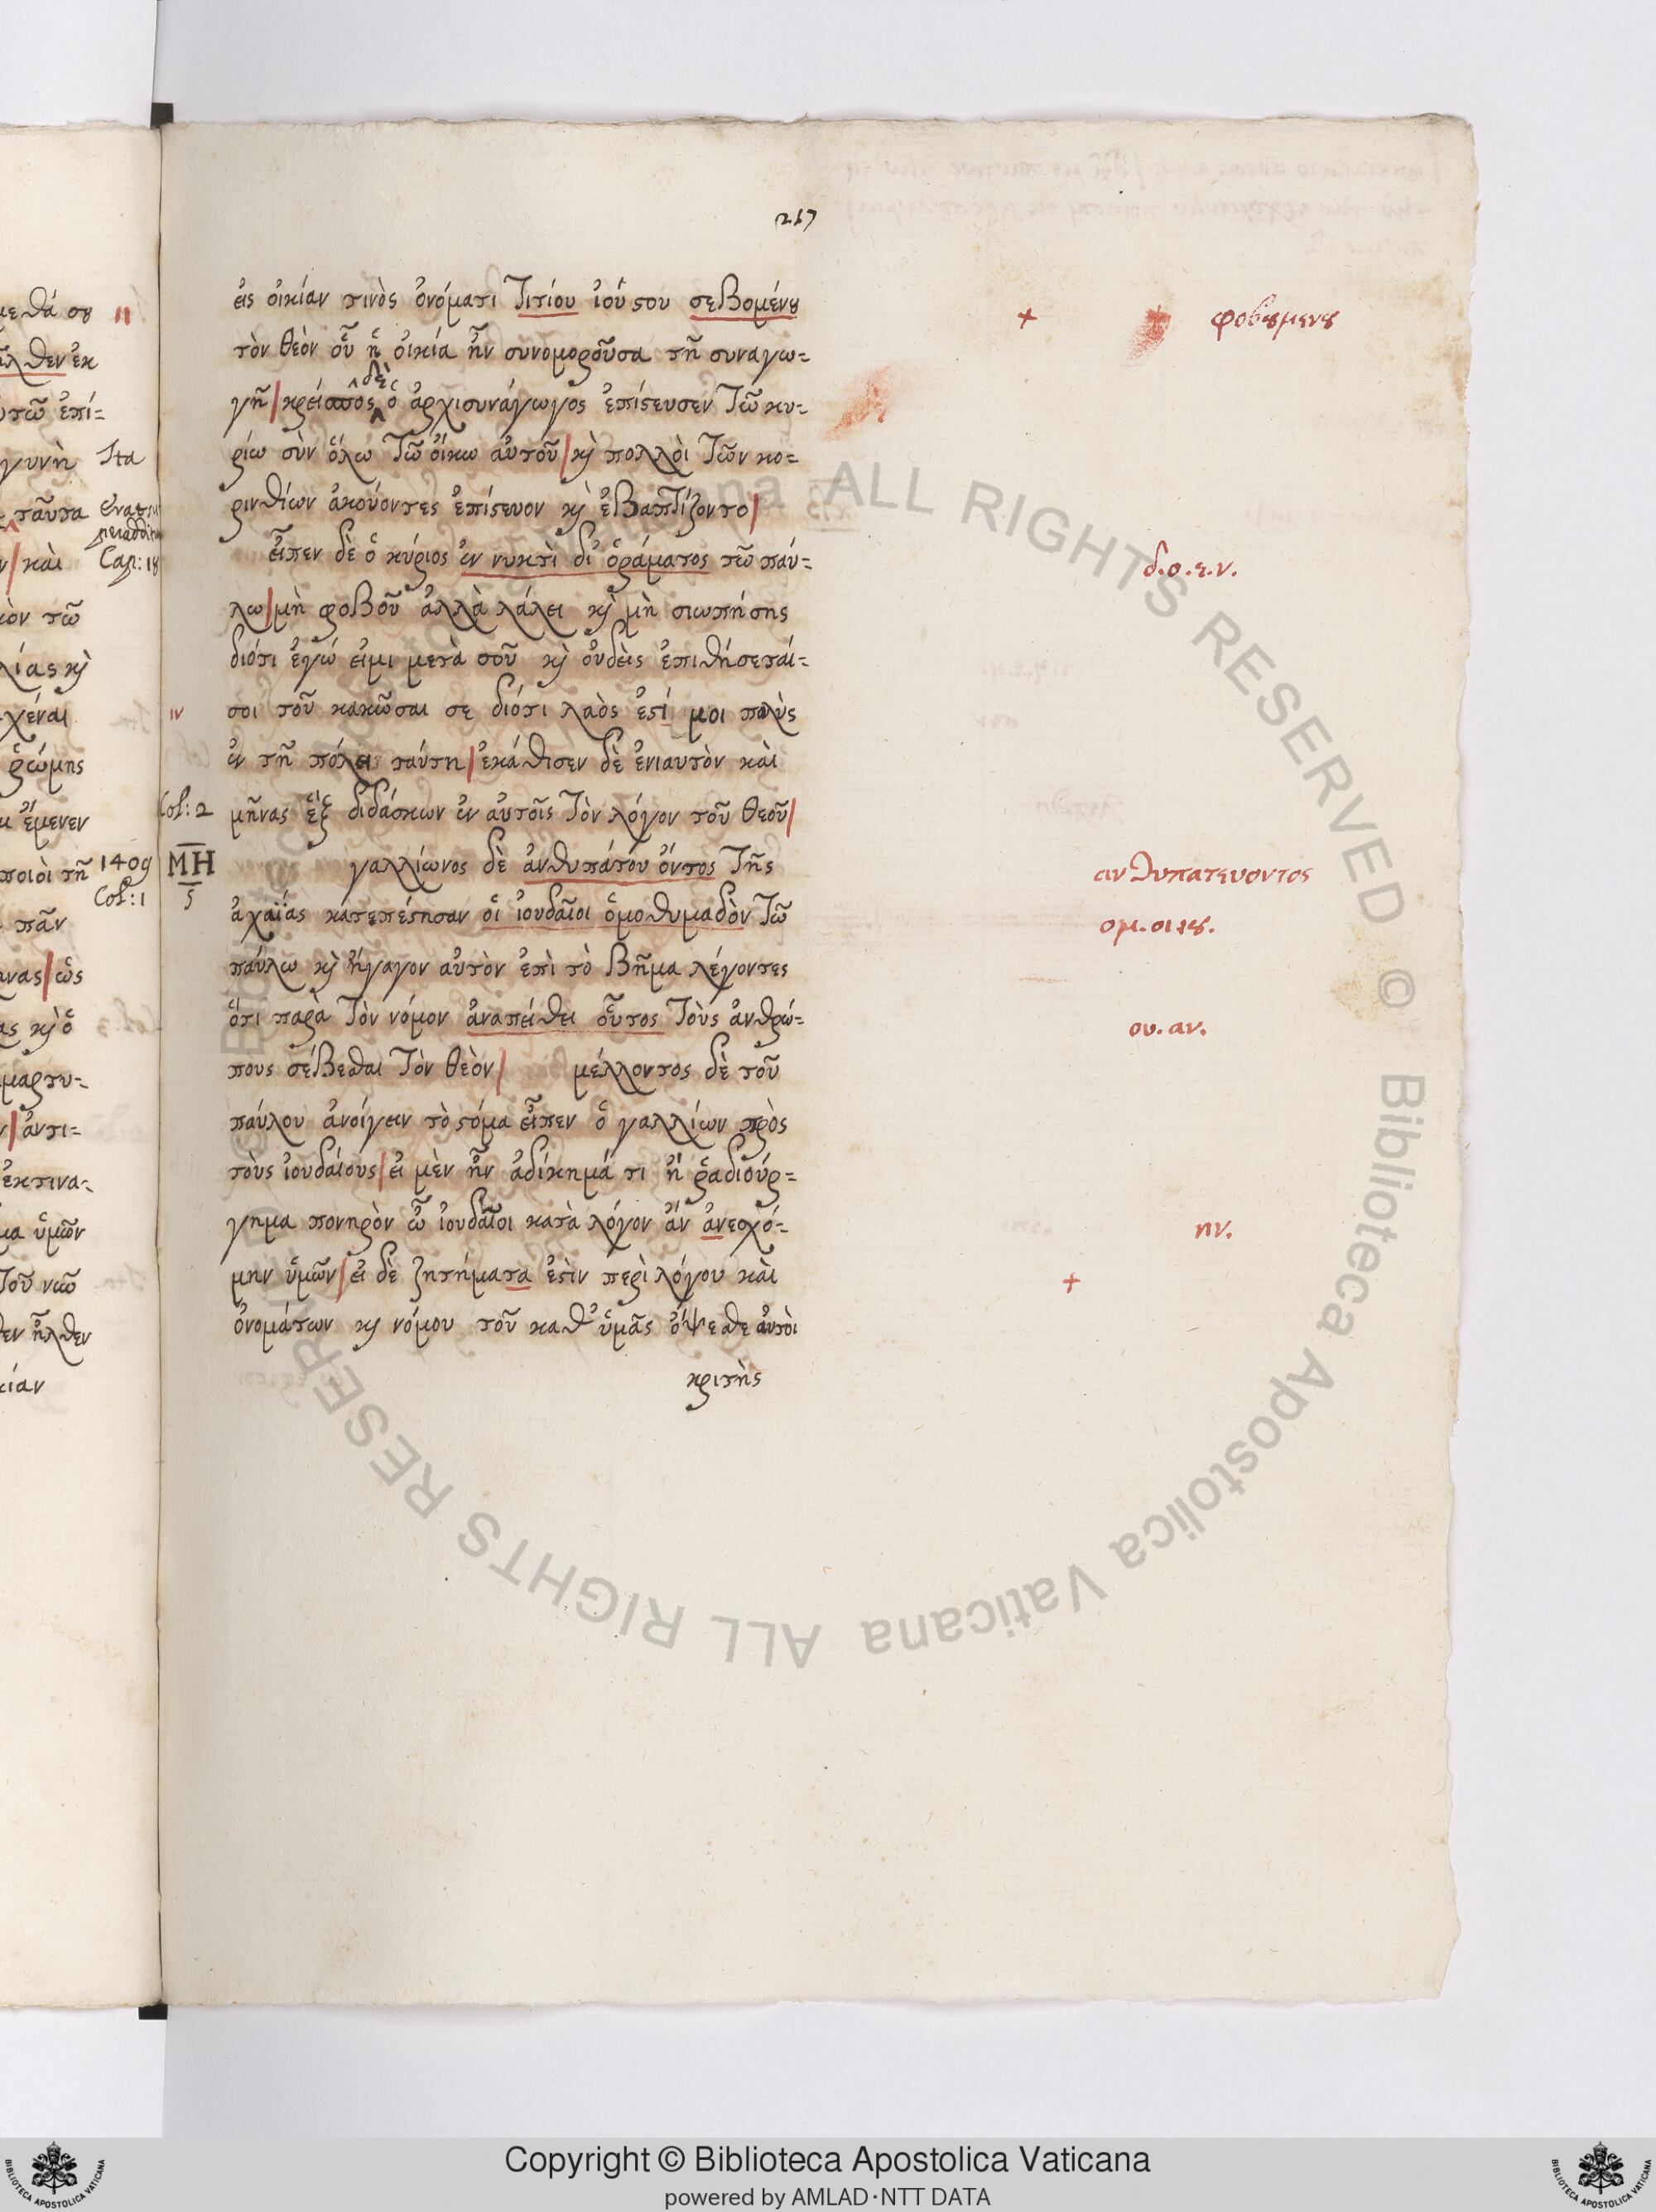 217
εἰς οἰκίαν τινὸς ὀνόματι Τιτίου ἰούστου σεβομένου
τὸν θεὸν οὗ ἡ οἰκία ἦν συνομοροῦσα τῆ συναγω=
δὲ
γῆ| κρείσπος ὁ ἀρχισυνάγωγος ἐπίστευσεν τῶ κυ=
ρίω σὺν ὅλω τῶ οἴκω αὐτοῦ| κὶ πολλοὶ τῶν κο=
ρινθίων ἀκούοντες ἐπίστευον κὶ ἐβαπτίζοντο|
εἶπεν δὲ ὁ κύριος ἐν νυκτὶ δι᾽ ὁράματος τῶ παύ=
λω| μὴ φοβοῦ ἀλλὰ λάλει κὶ μὴ σιωπήσης
διότι ἐγώ εἰμι μετὰ σοῦ κὶ οὐδεὶς ἐπιθήσεταί=
σοι τοῦ κακῶσαι σε διότι λαὸς ἐστί μοι πολὺς
ἐν τῆ πόλει ταύτη| ἐκάθισεν δὲ ἐνιαυτὸν καὶ
μῆνας ἓξ διδάσκων ἐν αὐτοῖς τὸν λόγον τοῦ θεοῦ|
γαλλίωνος δὲ ἀνθυπάτου ὄντος τῆς
ἀχαΐας κατεπέστησαν οἱ ἰουδαῖοι ὁμοθυμαδὸν τῶ
παύλω κὶ ἤγαγον αὐτὸν ἐπὶ τὸ βῆμα λέγοντες
ὅτι παρὰ τὸν νόμον ἀναπείθει οὗτος τοὺς ἀνθρώ=
πους σέβεσθαι τὸν θεὸν| μέλλοντος δὲ τοῦ
παύλου ἀνοίγειν τὸ στόμα εἶπεν ὁ γαλλίων πρὸς
τοὺς ἰουδαίους| εἰ μὲν ἦν ἀδίκημά τι ἢ ῥαδιούρ=
γημα πονηρὸν ὦ ἰουδαῖοι κατὰ λόγον ἂν ἀνεσχό=
μην ὑμῶν| εἰ δὲ ζητήματα ἐστὶν περὶ λόγου καὶ
ὀνομάτων κὶ νόμου τοῦ καθ᾽ ὑμᾶς ὄψεσθε αὐτοὶ
κριτὴς
IV
Col: 2
ΜΗ
5
+ + φοβουμενου
δ.ο.ε.ν.
ανθυπατευοντος
ομ.οι ιου.
ου.αν.
ην.
+
II
Ita
Cap: 18
1409
Col: 1
ἔμενεν
ὑμῶν
ῥώμης
© Biblioteca Apostolica Vaticana ALL RIGHTS RESERVED
Copyright © Biblioteca Apostolica Vaticana
powered by AMLAD·NTT DATA
BIBLIOTECA APOSTOLICA VATICANA
BIBLIOTECA APOSTOLICA VATICANA